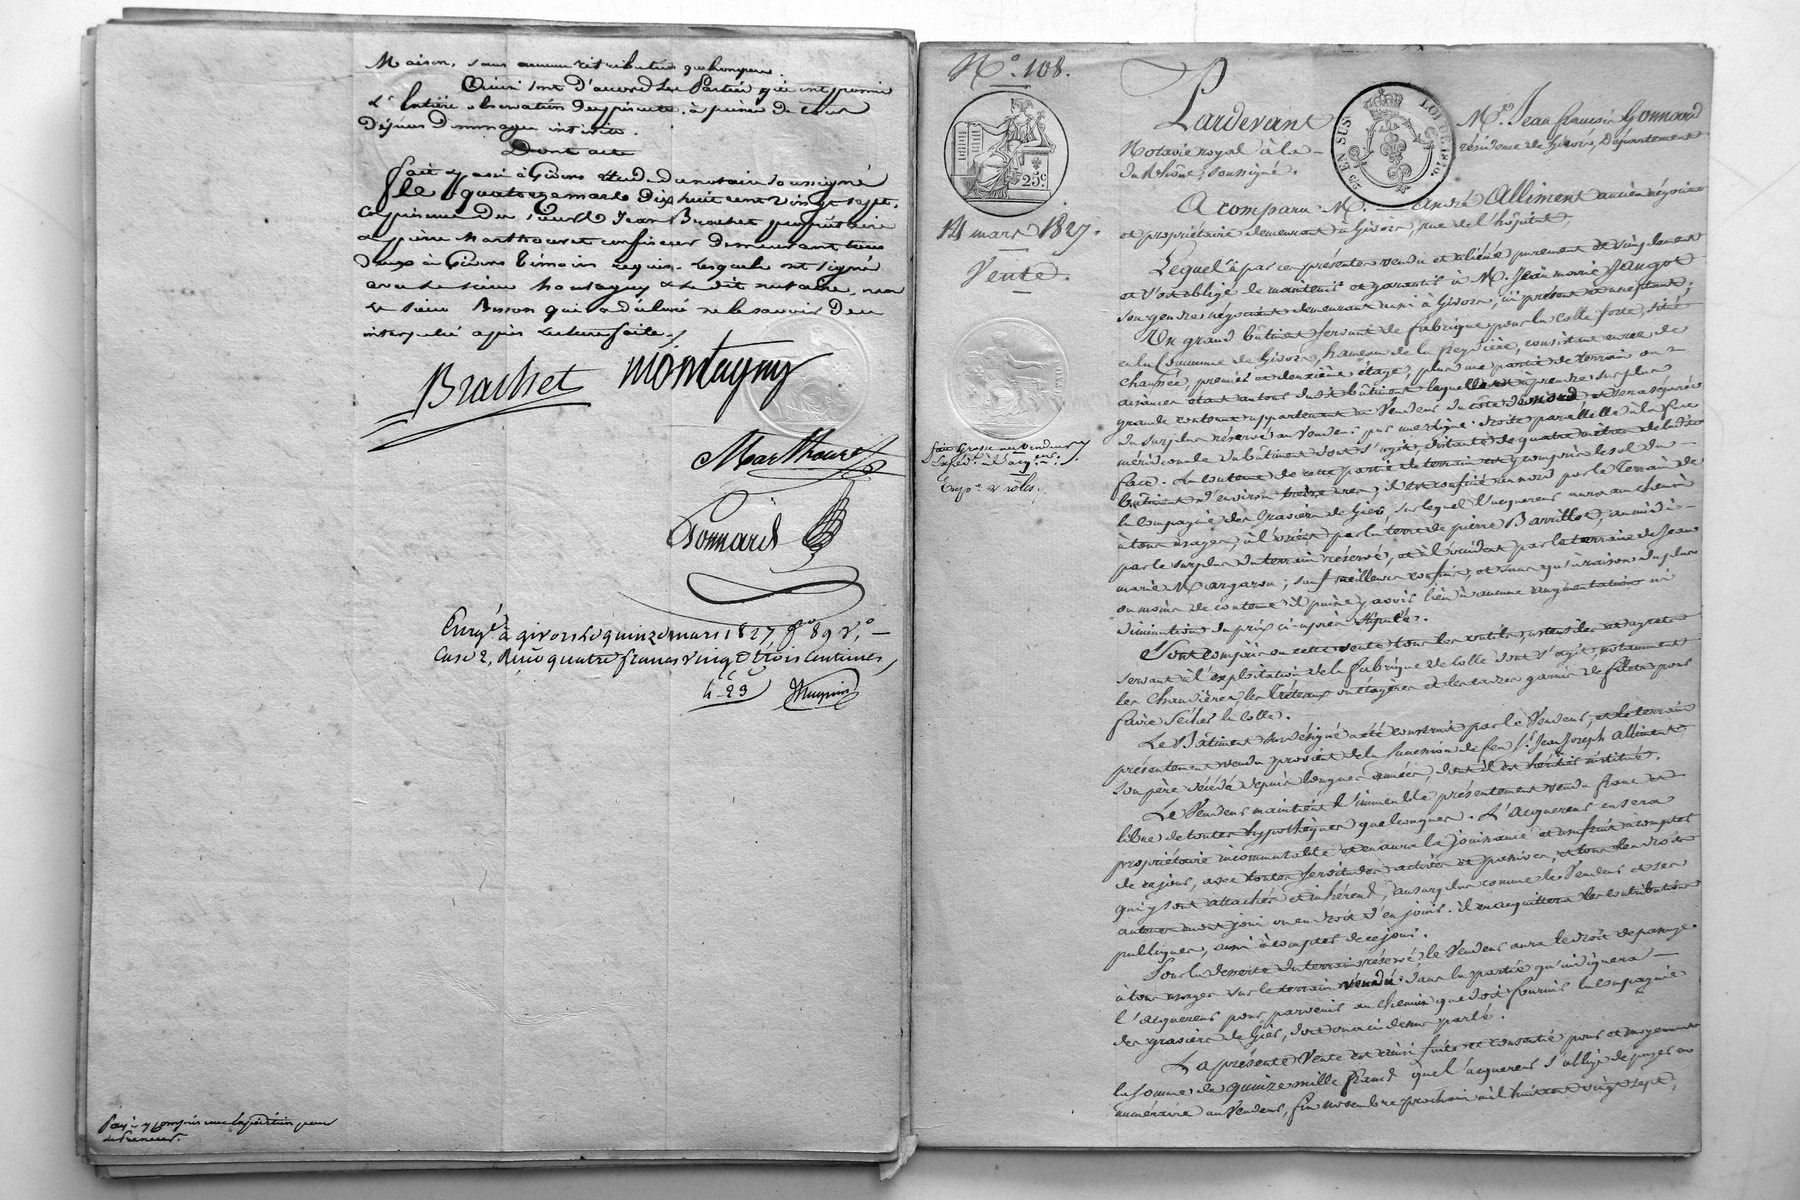 Maison, sans aucune rétribution quelconque.
Ainsi sont d'accord les Parties qui ont promis
l'entière observation des présentes, à peine de tous
dépens dommages intérêts.
Dont acte
fait et passé à Givors étude du notaire soussigné
le quatorze mars dix huit cent vingt sept,
en présence des sieurs Jean Brachet propriétaire
et pierre Marthouret confiseur demeurant tous
deux à Givors témoins requis. lesquels ont signé
avec le sieur Montagny et le dit notaire, non
le sieur Bisson qui a déclaré ne le savoir de ce
interpellé après lecture faite.
Brachet Montagny
Marthouret
Gonnard
Enrgé à givors le quinze mars 1827 fo 89 Vo
Case 2, Reçu quatre francs vingt trois centimes,
4-23
No. 108.
25c
14 mars 1827.
Vente.
Pardevant Me. Jean françois Gonnard
Notaire royal à la résidence de Givors, Département
du Rhône, soussigné.
A comparu M. André Alliment ancien négociant
et propriétaire demeurant à Givors, rue de l'hôpital,
Lequel a par ces présentes vendu et aliéné purement et simplement
et s'est obligé de maintenir et garantir à M. Jean marie Jangot
son gendre négociant demeurant aussi à Givors, ici présent et acceptant;
Un grand bâtiment servant de fabrique pour la Colle forte, situé
en la Commune de Givors, hameau de la Freydière, consistant en rez de
chaussée, premier et deuxième étage, plus une partie de terrain ou
aisances étant autour dudit bâtiment laquelle est à prendre sur plus
grande contenue appartenant au Vendeur du côté du nord et sera séparée
du surplus réservé au Vendeur par une ligne droite parallèle à la face
méridionale du bâtiment dont s'agit, distante de quatre mètres de ladite
face. La contenue de cette partie de terrain est y compris le sol du
bâtiment d'environ treize ares; il est confiné au nord par le terrain de
la Compagnie des Graviers de Gier, sur lequel l'acquéreur aura un chemin
à tous usages, à l'orient par la terre de pierre Barrillot, au midi
par le surplus du terrain réservé, et à l'occident par le terrain de Jean
marie Margaron; sauf meilleurs confins, et sans qu'à raison du plus
ou moins de contenue il puisse y avoir lieu à aucune augmentation ni
diminution du prix ci-après stipulé.
Sont compris en cette vente tous les outils, ustensiles et agrets
servant à l'exploitation de la fabrique de Colle dont s'agit, notamment
les Chaudières, les tréteaux ou étagères et les cadres garnis de filets pour
faire sécher la colle.
Le Bâtiment sus désigné a été construit par le Vendeur, et le terrain
présentement vendu provient de la Succession de feu Sr. Jean Joseph Alliment
son père décédé depuis longues années, dont il est héritier institué.
Le Vendeur maintient l'immeuble présentement vendu franc et
libre de toutes hypothèques quelconques. L'acquéreur en sera
propriétaire incommutable et en aura la jouissance et usufruit à compter
de ce jour, avec toutes servitudes actives et passives, et tous les droits
qui y sont attachés et inhérents, au surplus comme le Vendeur et ses
auteurs en ont joui ou eu droit d'en jouir. il en acquittera les contributions
publiques, aussi à compter de ce jour.
Pour la desserte du terrain réservé le Vendeur aura le droit de passage
à tous usages sur le terrain vendu dans la partie qu'indiquera
l'acquéreur pour parvenir au chemin que doit fournir la compagnie
des graviers de Gier, dont on a ci dessus parlé.
La présente Vente est ainsi faite et consentie pour et moyennant
la Somme de quinze mille francs que l'acquéreur s'oblige de payer en
numéraire au Vendeur, fin novembre prochain mil huit cent vingt sept,